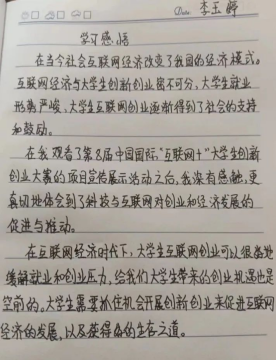 Date 李玉婷
学习感悟
在当今社会互联网经济改变了我国的经济模式。
互联网经济与大学生创新创业密不可分,大学生就业
形势严峻,大学生互联网创业逐渐得到了社会的支持
和鼓励。
在我观看了第8届中国国际"互联网+"大学生创新
创业大赛的项目宣传展示活动之后,我深有感触,更
真切地体会到了科技与互联网对创业和经济发展的
促进与推动。
在互联网经济时代下,大学生互联网创业可以很好地
缓解就业和创业压力,给我们大学生带来的创业机遇也是
空前的。大学生需要抓住机会开展创新创业来促进互联网
经济的发展,以及获得自己的生存之道。